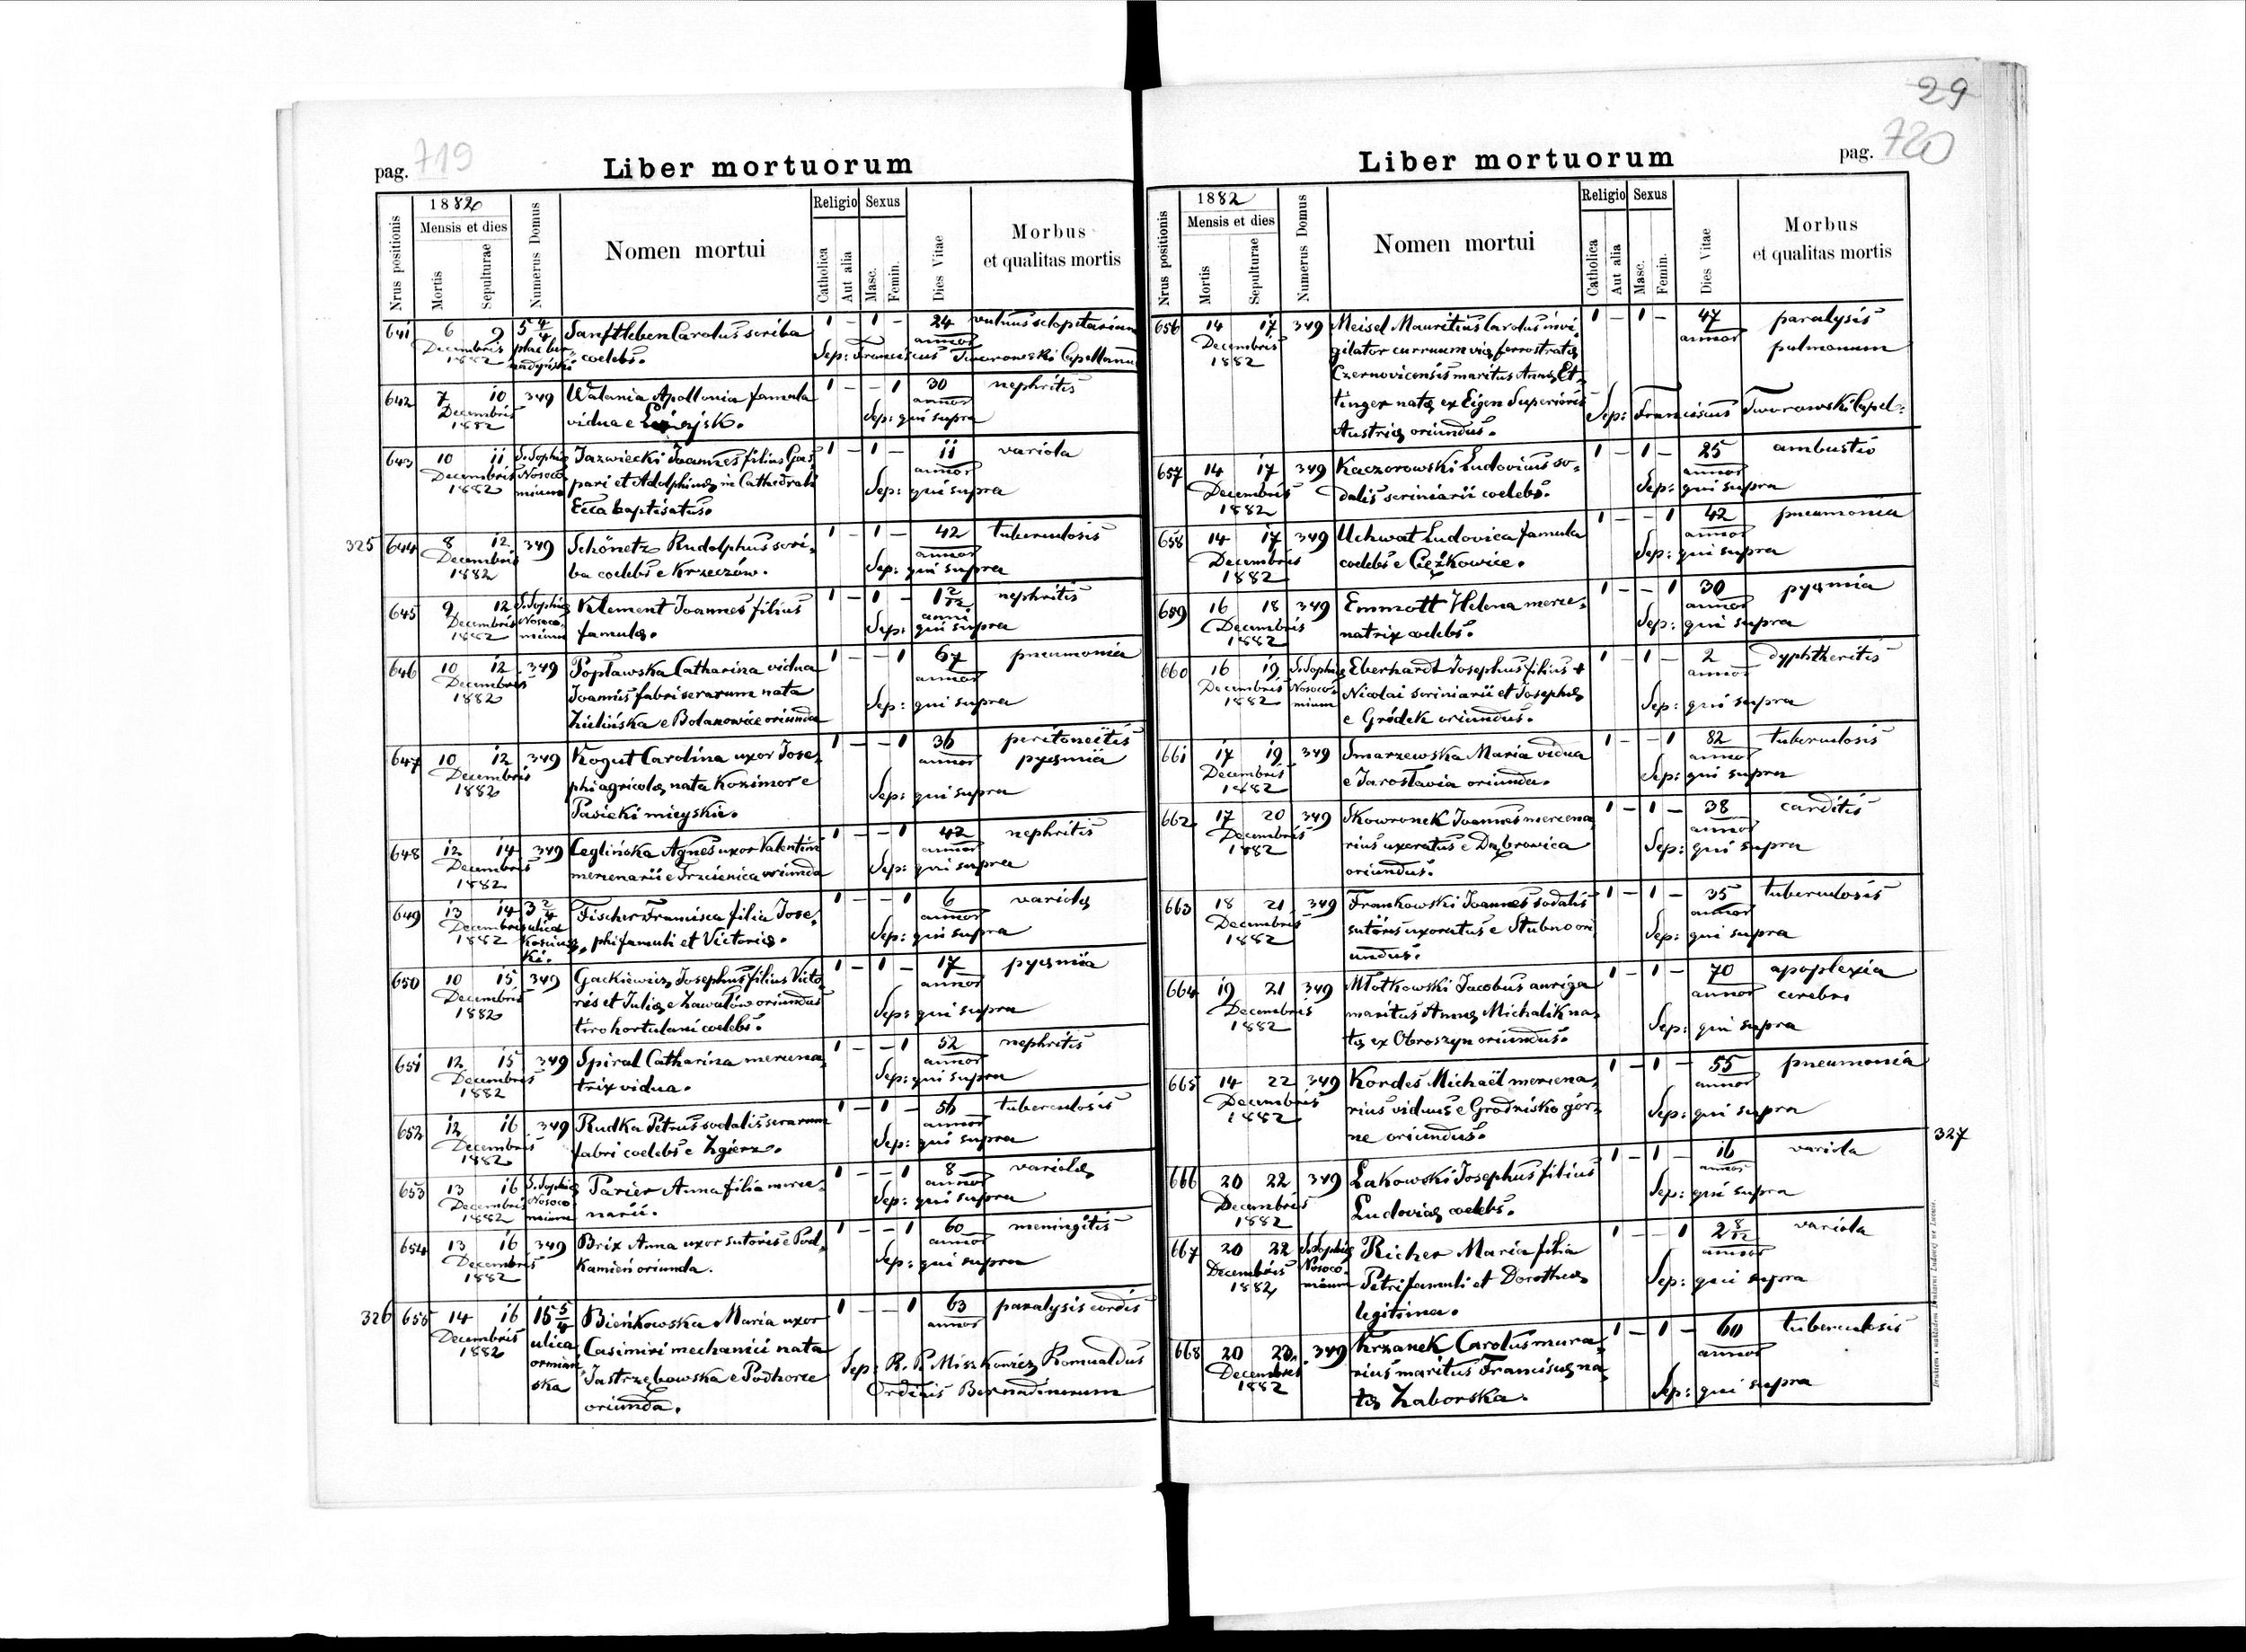 29
pag. 719
Liber mortuorum
Nrus positionis
1882
Mensis et dies
Mortis
Sepulturae
Numerus Domus
Nomen mortui
Religio
Catholica
Aut alia
Sexus
Masc.
Femin.
Dies Vitae
Morbus
et qualitas mortis
641 6 9 5 4/4 Sanftleben Carolus scriba 1 – 1 – 24 vulnus sclopetarium
Decembris annor
1882 coelebs. Sep: Franciscus Tworowski Capellanus
642 7 10 349 Walania Apollonia famula 1 – – 1 30 nephritis
Decembris annor
1882 vidua e Sep: qui supra
643 10 11 S. Sophia Jazwiecki Joannes filius Gas 1 – 1 – 11 variola
Decembris Nosoco pari et Adolphinæ in Cathedrali annor
1882 mium Ecca baptisatus. Sep: qui supra
325 644 8 12 349 Schönetz Rudolphus scri, 1 – 1 – 42 tuberculosis
Decembris annor
1882 ba coelebs e Krzeczów. Sep: qui supra
645 9 12 S. Sophia Klement Joannes filius 1 – 1 – 1 2/12 nephritis
Decembris Nosoco- anni
1882 mium famulæ. Sep: qui supra
646 10 12 349 Popławska Catharina vidua 1 – – 1 67 pneumonia
Decembris Joannis fabri serarum nata annor
1882 Zielińska e Bolanowice oriunda Sep: qui supra
647 10 12 349 Kogut Carolina uxor Jose, 1 – – 1 36 peritoneitis
Decembris phi agricolæ nata Kozimor e annor pyæmia
1882 Pasieki mieyskie. Sep: qui supra
648 12 14 349 Ceglińska Agnes uxor Valentini 1 – – 1 42 nephritis
Decembris annor
1882 mercenarii e Trzcienica oriunda Sep: qui supra
649 13 14 3 2/4 Fischer Francisca filia Jose, 1 – – 1 6 variola
Decembris ulica annor
1882 phi famuli et Victoriæ. Sep: qui supra
650 10 15 349 Gackiewicz Josephus filius Victo 1 – 1 – 17 pyæmia
Decembris ris et Juliæ e Zawałów oriundus annor
1882 tiro hortulani coelebs. Sep: qui supra
651 12 15 349 Spiral Catharina mercena, 1 – – 1 52 nephritis
Decembris annor
1882 trix vidua. Sep: qui supra
652 12 16 349 Rudka Petrus sodalis serarum 1 – 1 – 56 tuberculosis
Decembris annor
1882 fabri coelebs e Zgierz. Sep: qui supra
653 13 16 S. Sophia Parier Anna filia merce, 1 – – 1 8 variola
Decembris Nosoco annor
1882 mium narii. Sep: qui supra
654 13 16 349 Brix Anna uxor sutoris e Pod, 1 – – 1 60 meningitis
Decembris annor
1882 kamień oriunda. Sep: qui supra
326 655 14 16 15 5/4 Bieńkowska Maria uxor 1 – – 1 63 paralysis cordis
Decembris ulica Casimiri mechanici nata annor
1882 ormiań Jastrzębowska e Podhorce Sep: R. P. Miszkowicz Romualdus
ska oriunda. Ordinis Bernadinorum
Liber mortuorum
pag. 720
Nrus positionis
1882
Mensis et dies
Mortis
Sepulturae
Numerus Domus
Nomen mortui
Religio
Catholica
Aut alia
Sexus
Masc.
Femin.
Dies Vitae
Morbus
et qualitas mortis
656 14 17 349 Meisel Mauritius Carolus invi, 1 – 1 – 47 paralysis
Decembris gilator curruum viæ ferrostratæ annor pulmonum
1882 Czernovicensis maritus Annæ Et,
tinger natæ ex Eigen Superioris Sep: Franciscus Tworowski Capel:
Austriæ oriundus.
657 14 17 349 Kaczorowski Ludovicus so, 1 – 1 – 25 ambustio
Decembris annor
1882 dalis scriniarii coelebs. Sep: qui supra
658 14 17 349 Uchwat Ludovica famula 1 – – 1 42 pneumonia
Decembris annor
1882 coelebs e Ciężkowice. Sep: qui supra
659 16 18 349 Emmott Helena merce, 1 – – 1 30 pyæmia
Decembris annor
1882 natrix coelebs. Sep: qui supra
660 16 19 S. Sophia Eberhardt Josephus filius + 1 – 1 – 2 dyphtheritis
Decembris Nosoco- Nicolai scriniarii et Josephæ annor
1882 mium e Gródek oriundus. Sep: qui supra
661 17 19 349 Smarzewska Maria vidua 1 – – 1 82 tuberculosis
Decembris annor
1882 e Jarosłavia oriunda. Sep: qui supra
662 17 20 349 Skowronek Joannes mercena, 1 – 1 – 38 carditis
Decembris rius uxoratus e Dąbrowica annor
1882 oriundus. Sep: qui supra
663 18 21 349 Frankowski Joannes sodalis 1 – 1 – 35 tuberculosis
Decembris sutoris uxoratus e Stubno ori annor
1882 undus. Sep: qui supra
664 19 21 349 Młotkowski Jacobus auriga 1 – 1 – 70 apoplexia
Decembris maritus Annæ Michalik na, annor cerebri
1882 tæ ex Obroszyn oriundus. Sep: qui supra
665 14 22 349 Kordes Michaël mercena, 1 – 1 – 55 pneumonia
Decembris rius viduus e Grodzisko gór, annor
1882 ne oriundus. Sep: qui supra
327
666 20 22 349 Łakowski Josephus filius 1 – 1 – 16 variola
Decembris annor
1882 Ludovicæ coelebs. Sep: qui supra
667 20 22 S. Sophia Richer Maria filia 1 – – 1 2 8/12 variola
Decembris Nosoco- Petri famuli et Dorotheæ annor
1882 mium legitima. Sep: qui supra
668 20 23 349 Krzanek Carolus mura, 1 – 1 – 60 tuberculosis
Decembris rius maritus Franciscæ na, annor
1882 tæ Zaborska. Sep: qui supra